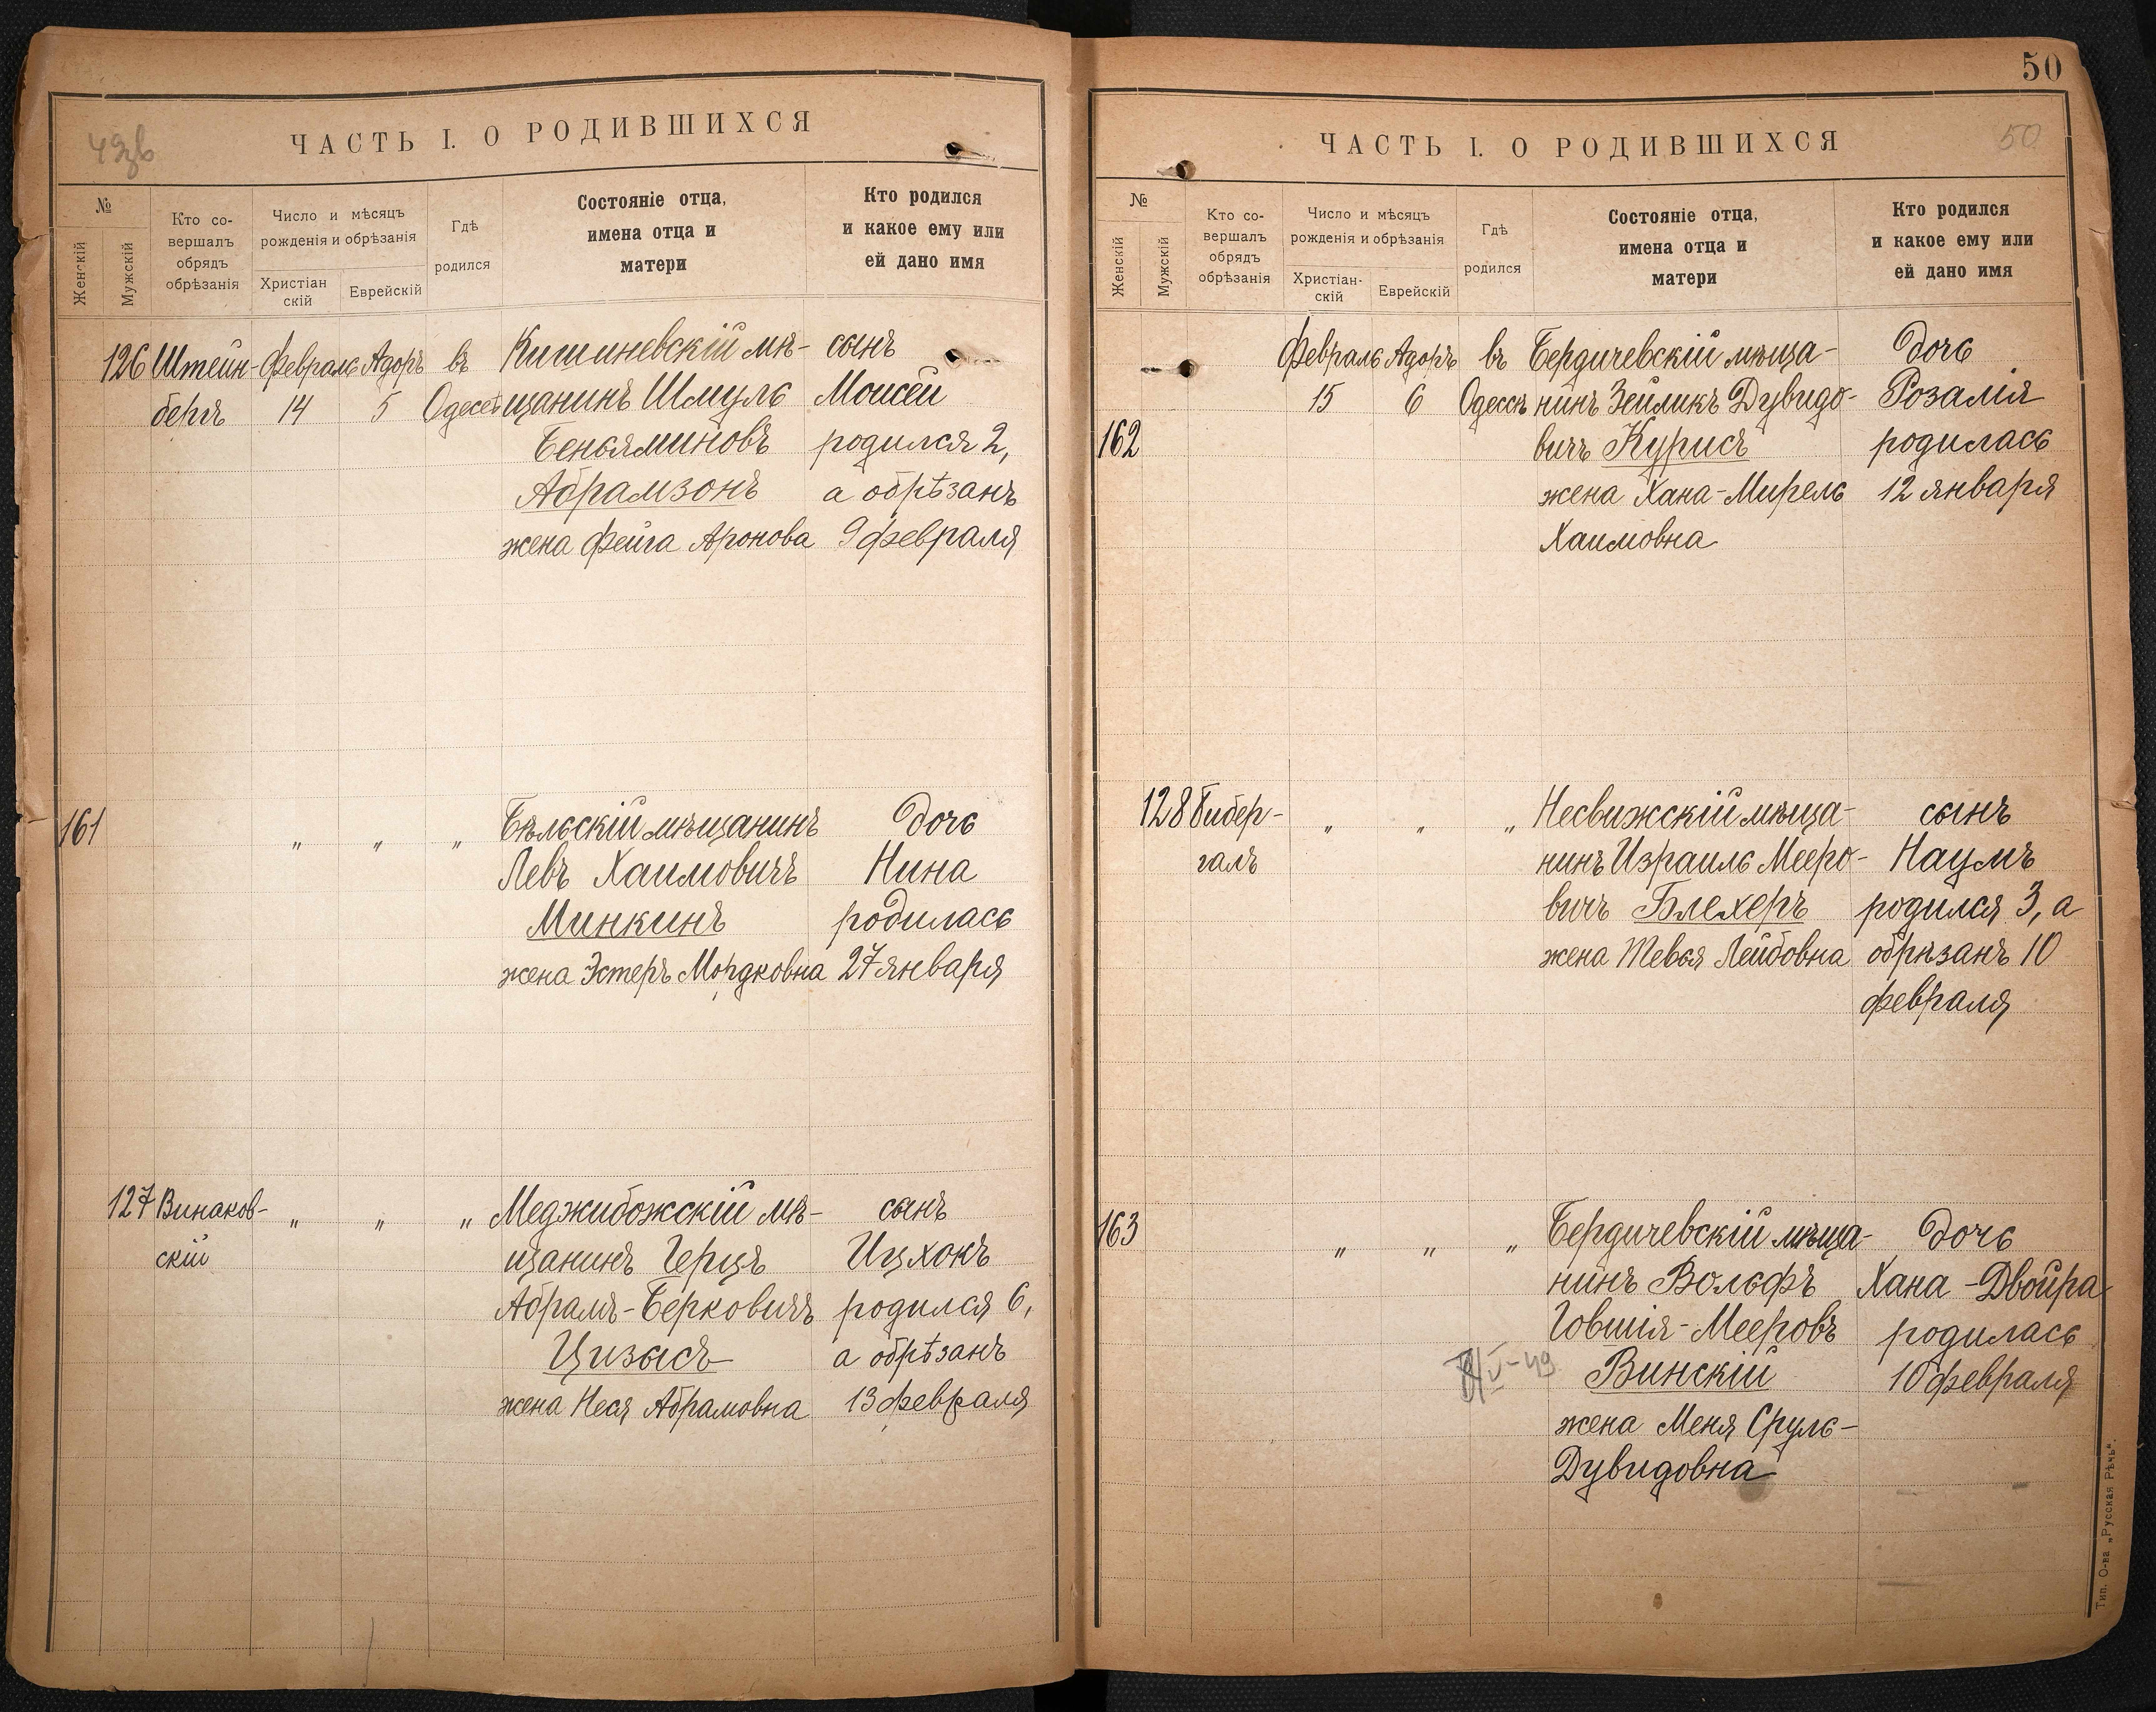 49зв
ЧАСТЬ I. О РОДИВШИХСЯ
№
Женскій
Мужскій
Кто со-
вершалъ
обрядъ
обрѣзанія
Число и мѣсяцъ
рожденія и обрѣзанія
Христіан
скій
Еврейскій
Гдѣ
родился
Состояніе отца,
имена отца и
матери
Кто родился
и какое ему или
ей дано имя
126 Штейн- Февраль Адоръ въ Кишиневскій мѣ- сынъ
бергъ 14 5 Одессѣ щанинъ Шмуль Моисей
Беньяминовъ родился 2,
Абрамзонъ а обрѣзанъ
жена Фейга Аронова 9 февраля
161 " " " Бѣльскій мѣщанинъ дочь
Левъ Хаимовичъ Нина
Минкинъ родилась
жена Эстеръ Мордковна 27 января
127 Винаков- " " " Меджибожскій мѣ- сынъ
скій щанинъ Герцъ Ицхокъ
Абрамъ-Берковичъ родился 6,
Цизысъ а обрѣзанъ
жена Неся Абрамовна 13 февраля
50
ЧАСТЬ I. О РОДИВШИХСЯ
50
№
Женскій
Мужскій
Кто со-
вершалъ
обрядъ
обрѣзанія
Число и мѣсяцъ
рожденія и обрѣзанія
Христіан-
скій
Еврейскій
Гдѣ
родился
Состояніе отца,
имена отца и
матери
Кто родился
и какое ему или
ей дано имя
Февраль Адоръ въ Бердичевскій мѣща- дочь
15 6 Одессѣ нинъ Зейликъ Дувидо- Розалія
162 вичъ Курисъ родилась
жена Хана-Мирель 12 января
Хаимовна
128 Гибер- " " " Несвижскій мѣща- сынъ
галъ нинъ Израиль Мееро- Наумъ
вичъ Блехеръ родился 3, а
жена Тевья Лейбовна обрѣзанъ 10
февраля
163 " " " Бердичевскій мѣща- дочь
нинъ Вольфъ Хана-Двойра
Іовшія-Мееровъ родилась
Винскій 10 февраля
жена Меня Сруль-
Дувидовна
Тип. О-ва „Русская Рѣчь".